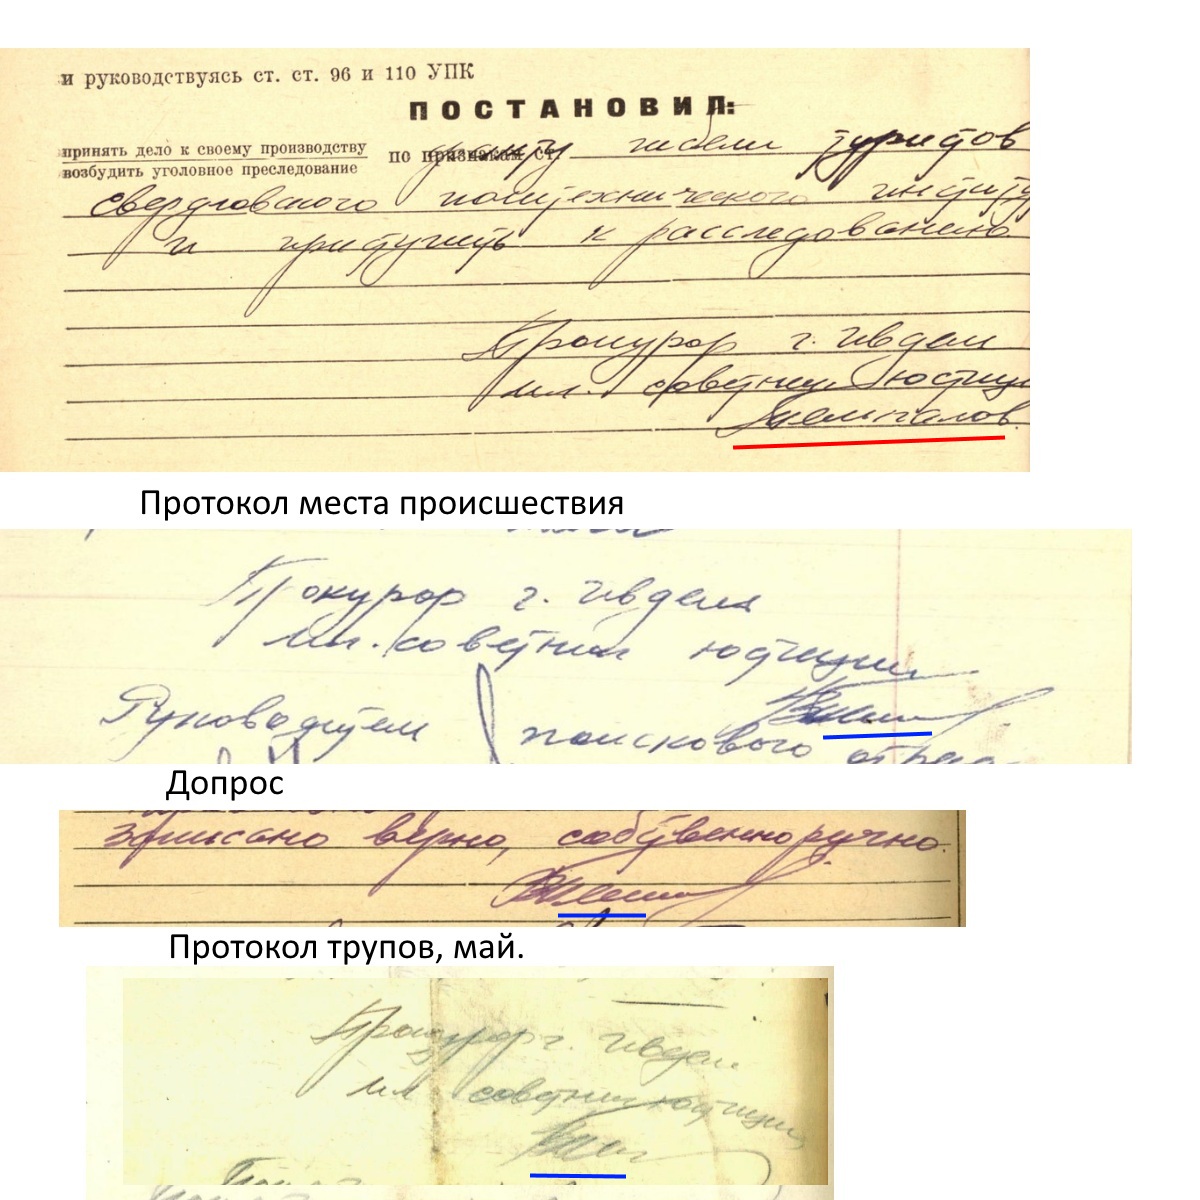 и руководствуясь ст. ст. 96 и 110 УПК
ПОСТАНОВИЛ:
принять дело к своему производству
возбудить уголовное преследование
по признакам ст. факту гибели туристов
свердловского политехнического институ
и приступить к расследованию
Прокурор г. Ивдель
мл. советник юстиц
Темпалов.
Протокол места происшествия
Прокурор г. Ивделя
мл. советник юстиции
Руководитель поискового отряда
Допрос
записано верно, собственноручно.
Протокол трупов, май.
Прокурор г. Ивдель
мл советник юстиции